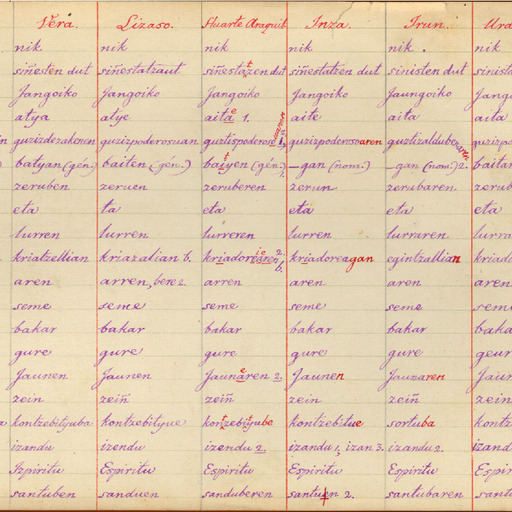 Vera. Lizaso. Huarte Araquil. Inza. Irun.
nik nik nik nik nik nik
siñesten dut siñestatzaut siñestatzen dut siñestatzen dut sinisten dut
Jangoiko Jangoiko Jangoiko Jangoiko Jaungoiko
atya atye aita 1. aite aita aita
guzizderakonen guzizpoderosuan guztispoderos guzizpoderosoaren
batyan (gén.) baiten (gén.) baityen (gén.) -gan (nom.) -gan (nom.) 2. baitan
zeruben zeruen zeruberen zerun zerubaren
eta ta eta eta eta eta
lurren lurren lurreren lurren lurraren
kriatzellian kriazalian 6. kriadoreagan egintzallian
aren arren, bere 2. aren aren aren aren
seme seme seme seme seme
bakar bakar bakar bakar bakar
gure gure gure gure gure geur
Jaunen Jaunen Jaunaren 2. Jaunen Jaunaren
zein zeiñ zeiñ zein zein zein
kontzebityuba kontzebityue kontzebityube kontzebitue sortuba
izandu izendu izendu 2. izandu 1, izan 3. izandu 2.
Izpiritu Espiritu Espiritu Espiritu Espiritu
santuben sanduen sanduberen santuen 2. santubaren